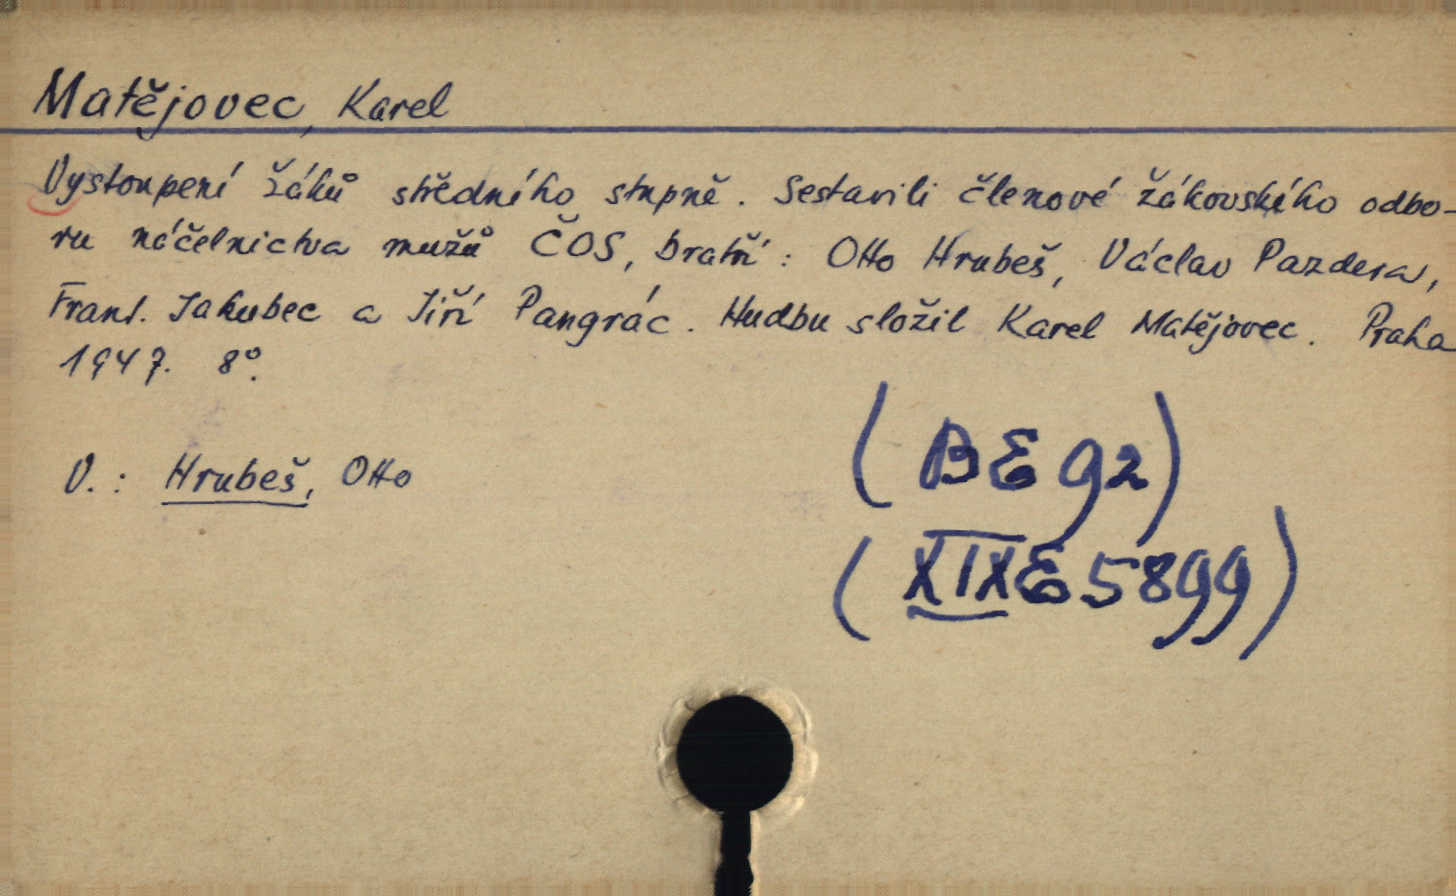 Matějovec, Karel
Vystoupení žáků středního stupně. Sestavili členové žákovského odbo-
ru náčelnictva mužů ČOS, bratří: Otto Hrubeš, Václav Pazdera,
Frant. Jakubec a Jiří Pangrác. Hudbu složil Karel Matějovec. Praha
1947. 8°.
V.: Hrubeš, Otto
(BE 92)
(XIX E 5899)